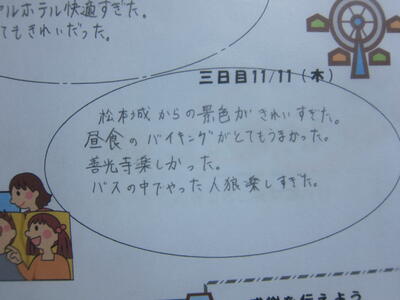 アルホテル快適すぎた。
てもきれいだった。
三日目11/11(木)
松本城からの景色がきれいすぎた。
昼食のバイキングがとてもうまかった。
善光寺楽しかった。
バスの中でやった人狼楽しすぎた。
を伝えよう